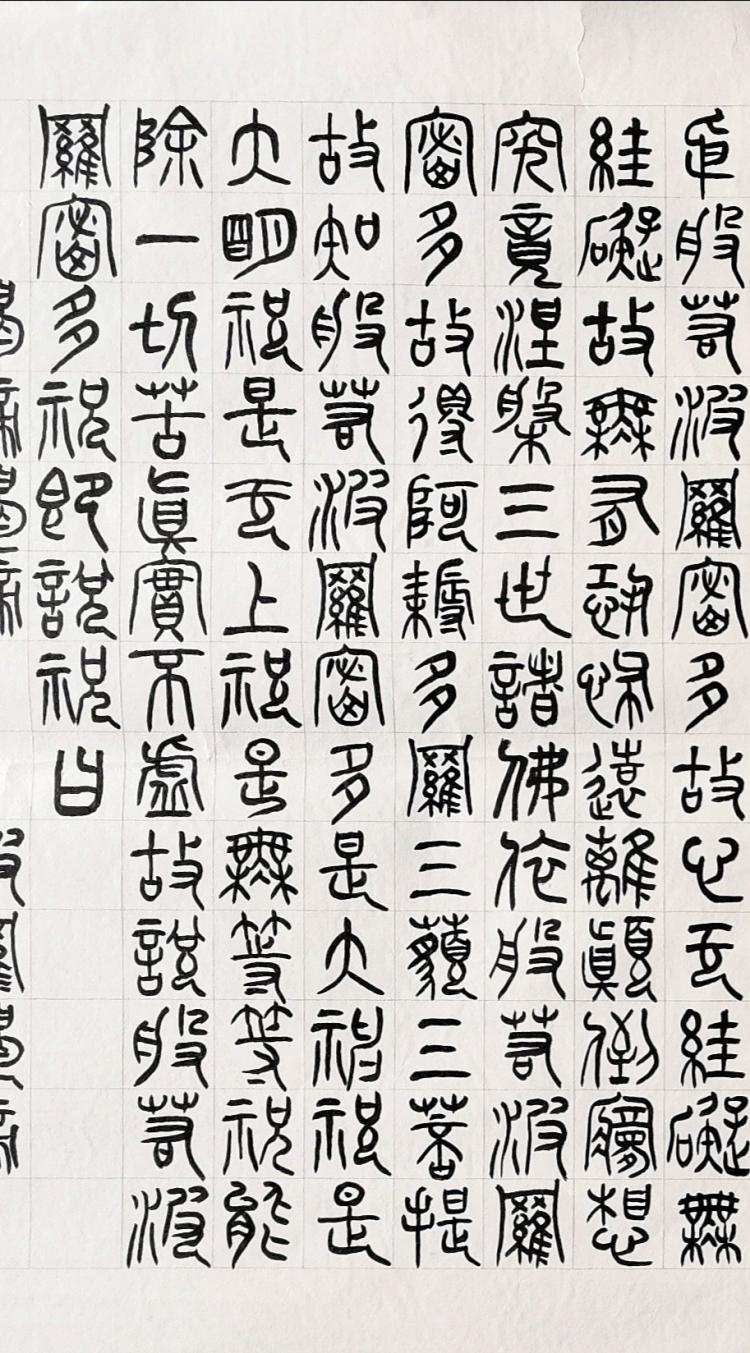 般若波羅蜜多故心无絓礙無
絓礙故無有恐怖遠離顛倒夢想
究竟涅槃三世諸佛依般若波羅
蜜多故得阿耨多羅三藐三菩提
故知般若波羅蜜多是大神祝是
大明祝是无上祝是無等等祝能
除一切苦真實不虛故說般若波
羅蜜多祝即說祝曰